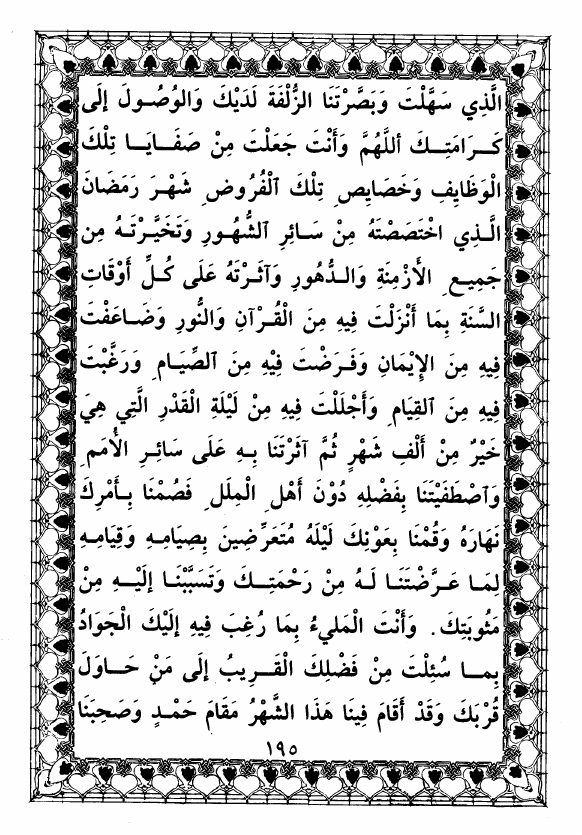 الَّذِي سَهَّلْتَ وَبَصَّرْتَنَا الزُّلْفَةَ لَدَيْكَ وَالْوُصُولَ إِلَى
كَرَامَتِكَ أَللَّهُمَّ وَأَنْتَ جَعَلْتَ مِنْ صَفَايَا تِلْكَ
الْوَظَايِفِ وَخَصَايِصِ تِلْكَ الْفُرُوضِ شَهْرَ رَمَضَانَ
الَّذِي اخْتَصَصْتَهُ مِنْ سَائِرِ الشُّهُورِ وَتَخَيَّرْتَهُ مِن
جَمِيعِ الأَزْمِنَةِ وَالدُّهُورِ وَآثَرْتَهُ عَلَى كُلِّ أَوْقَاتِ
السَّنَةِ بِمَا أَنْزَلْتَ فِيهِ مِنَ الْقُرْآنِ وَالنُّورِ وَضَاعَفْتَ
فِيهِ مِنَ الإِيْمَانِ وَفَرَضْتَ فِيْهِ مِنَ الصِّيَامِ وَرَغَّبْتَ
فِيهِ مِنَ القِيَامِ وَأَجْلَلْتَ فِيهِ مِنْ لَيْلَةِ الْقَدْرِ الَّتِي هِيَ
خَيْرٌ مِنْ أَلْفِ شَهْرٍ ثُمَّ آثَرْتَنَا بِهِ عَلَى سَائِرِ الأُمَمِ
وَاصْطَفَيْتَنَا بِفَضْلِهِ دُوْنَ أَهْلِ الْمِلَلِ فَصُمْنَا بِأَمْرِكَ
نَهَارَهُ وَقُمْنَا بِعَوْنِكَ لَيْلَهُ مُتَعَرِّضِينَ بِصِيَامِهِ وَقِيَامِهِ
لِمَا عَرَّضْتَنَا لَهُ مِنْ رَحْمَتِكَ وَتَسَبَّبْنَا إِلَيْهِ مِنْ
مَثُوبَتِكَ. وَأَنْتَ الْمَلِيءُ بِمَا رُغِبَ فِيهِ إِلَيْكَ الْجَوَادُ
بِمَا سُئِلْتَ مِنْ فَضْلِكَ الْقَرِيبُ إِلَى مَنْ حَاوَلَ
قُرْبَكَ وَقَدْ أَقَامَ فِينَا هَذَا الشَّهْرُ مَقَامَ حَمْدٍ وَصَحِبَنَا
١٩٥